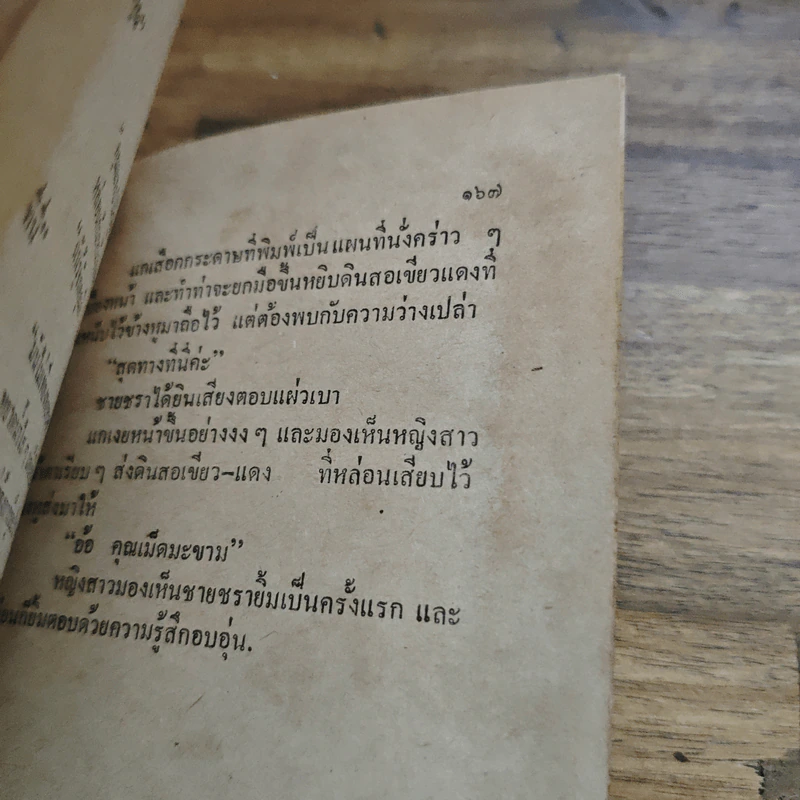 ๑๖๗
แกเลือกกระดาษที่พิมพ์เป็นแผนที่นั่งคร่าว ๆ
หน้า และทำท่าจะยกมือขึ้นหยิบดินสอเขียวแดงที่
ไว้ข้างหูมาถือไว้ แต่ต้องพบกับความว่างเปล่า
“สุดทางที่นี่ค่ะ”
ชายชราได้ยินเสียงตอบแผ่วเบา
แกเงยหน้าขึ้นอย่างงง ๆ และมองเห็นหญิงสาว
เรียบ ๆ ส่งดินสอเขียว–แดง ที่หล่อนเสียบไว้
ส่งมาให้
“อ้อ คุณเม็ดมะขาม”
หญิงสาวมองเห็นชายชรายิ้มเป็นครั้งแรก และ
ก็ยิ้มตอบด้วยความรู้สึกอบอุ่น.